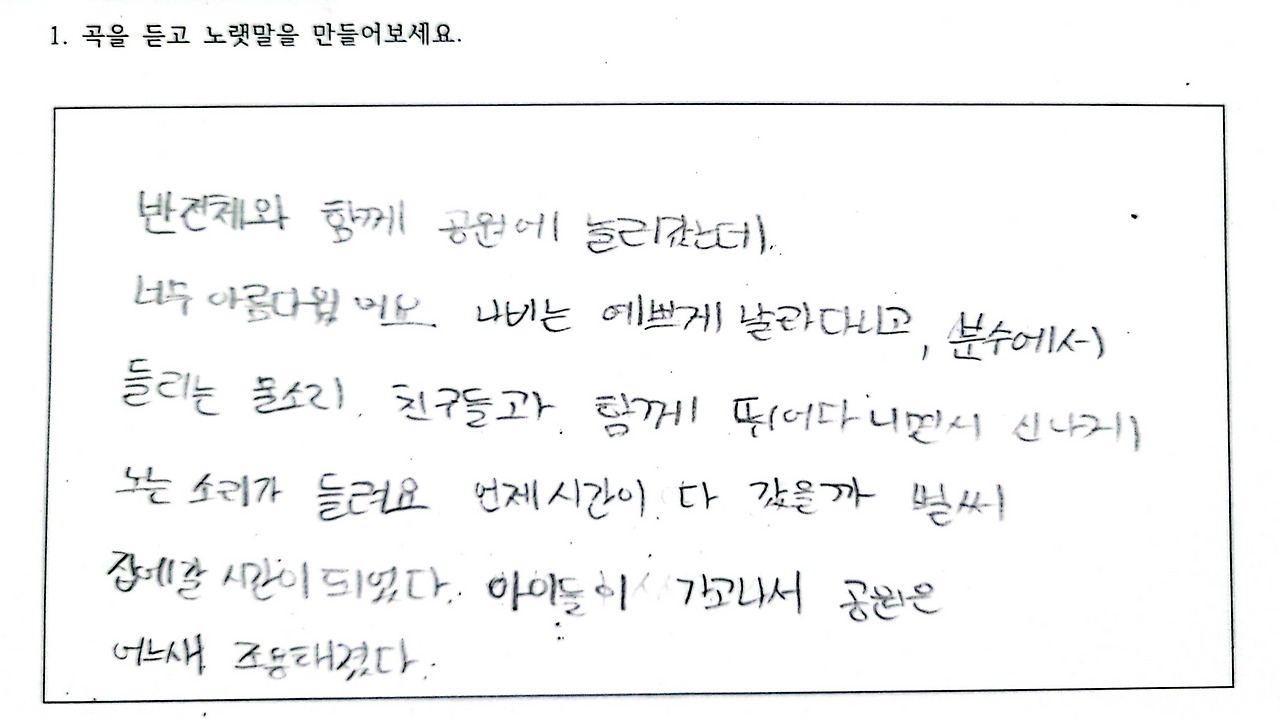 1. 곡을 듣고 노랫말을 만들어보세요.
반전체와 함께 공원에 놀러갔는데.
너무 아름다웠어요. 나비는 예쁘게 날라다니고, 분수에서
들리는 물소리. 친구들과 함께 뛰어다니면서 신나게
노는 소리가 들려요 언제 시간이 다 갔을까 벌써
집에갈 시간이 되었다. 아이들이 가고나서 공원은
어느새 조용해졌다.